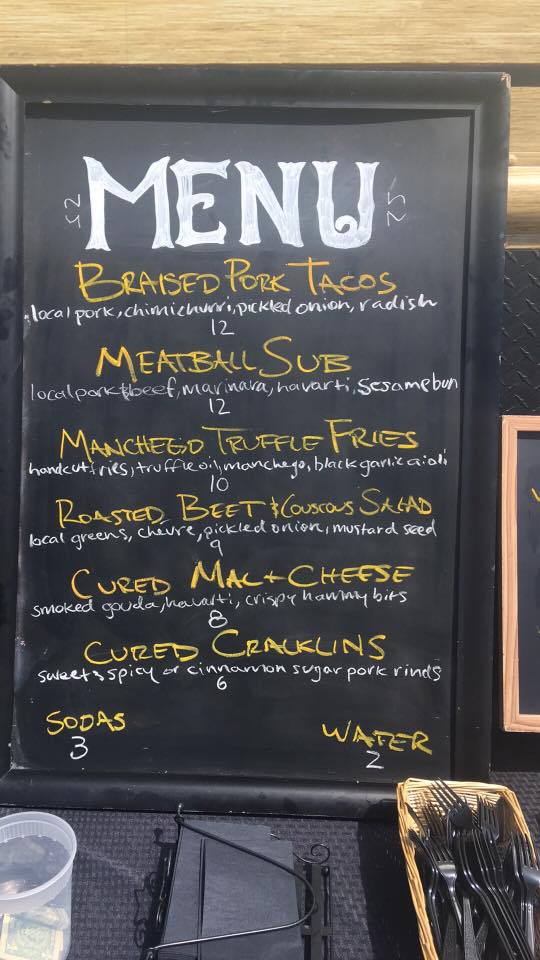 MENU
BRAISED PORK TACOS
local pork, chimichurri, pickled onion, radish
12
MEATBALL SUB
local pork & beef, marinara, havarti, sesame bun
12
MANCHEGO TRUFFLE FRIES
handcut fries, truffle oil, manchego, black garlic aioli
10
ROASTED BEET & COUSCOUS SALAD
local greens, chevre, pickled onion, mustard seed
9
CURED MAC + CHEESE
smoked gouda, havarti, crispy hammy bits
8
CURED CRACKLINS
sweet & spicy or cinnamon sugar pork rinds
6
SODAS
3
WATER
2